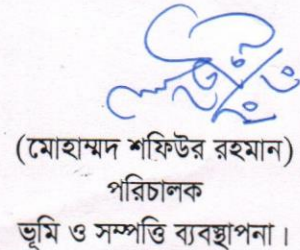 (মোহাম্মদ শফিউর রহমান)
পরিচালক
ভূমি ও সম্পত্তি ব্যবস্থাপনা।